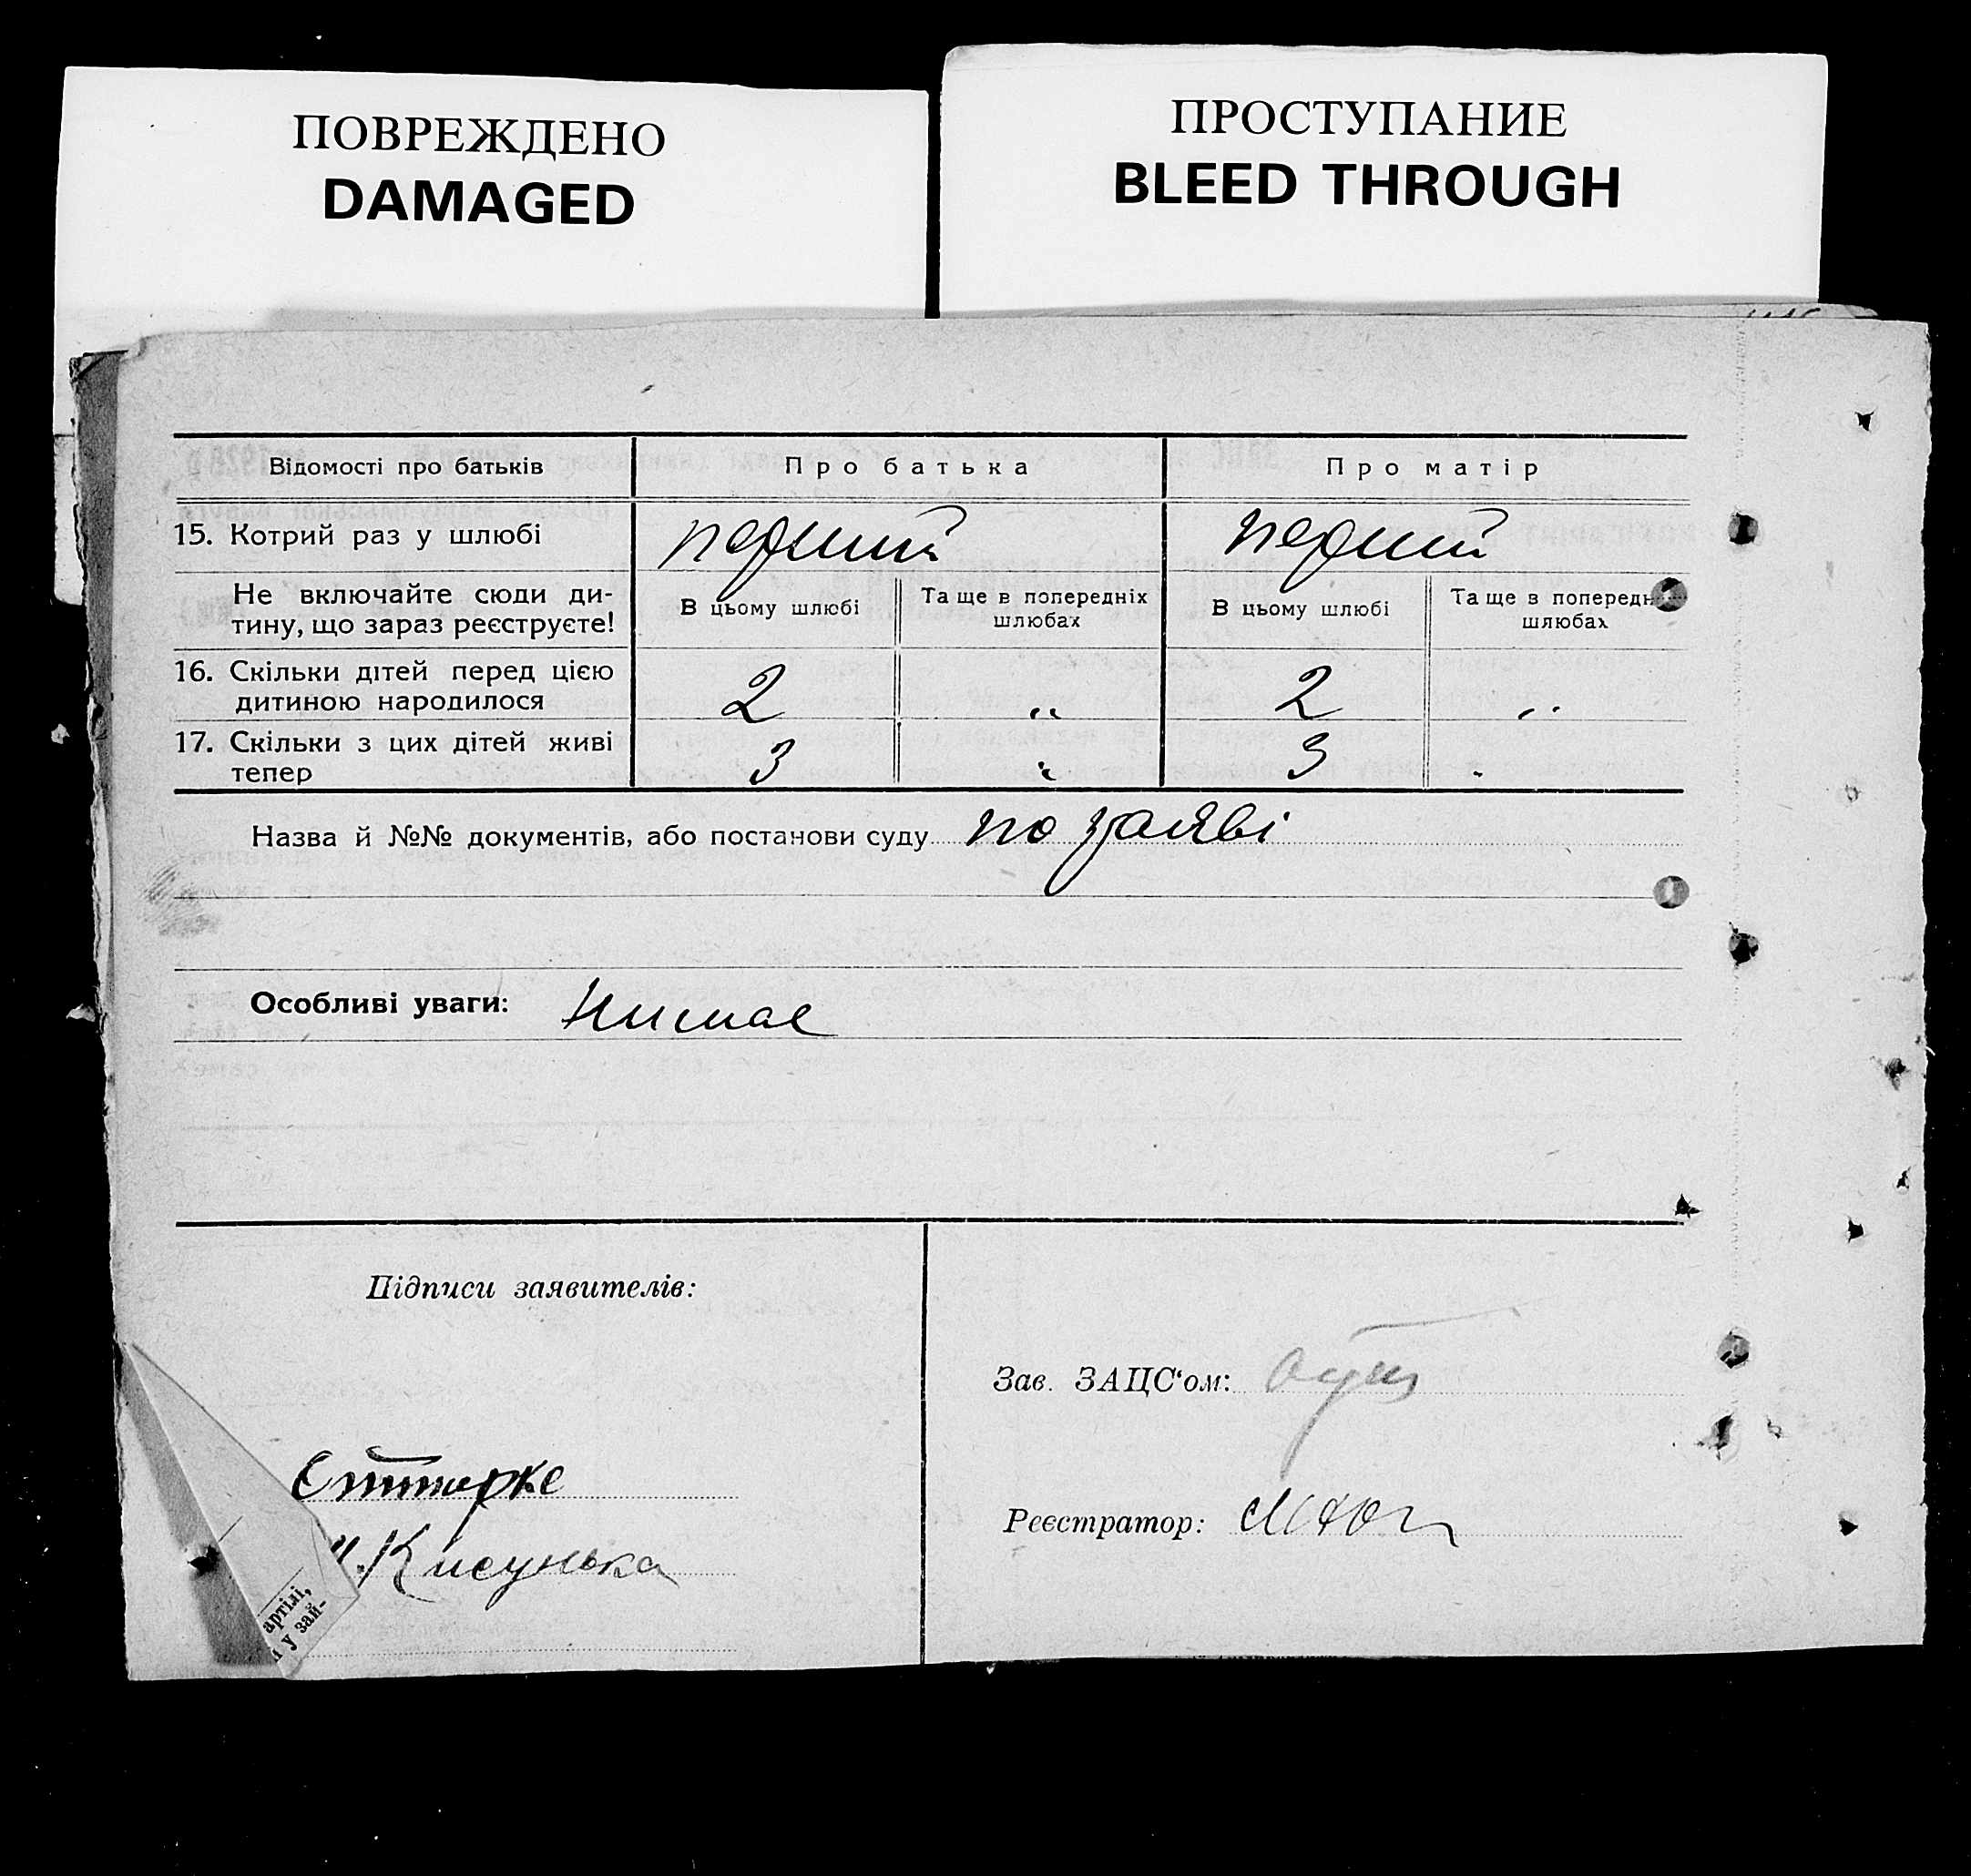 ПОВРЕЖДЕНО
DAMAGED
ПРОСТУПАНИЕ
BLEED THROUGH
Відомості про батьків
Про батька
Про матір
15. Котрий раз у шлюбі
перший
перший
Не включайте сюди ди-
тину, що зараз реєструєте!
В цьому шлюбі
Та ще в попередніх
шлюбах
В цьому шлюбі
Та ще в попередн
шлюбах
16. Скільки дітей перед цією
дитиною народилося
2
"
2
"
17. Скільки з цих дітей живі
тепер
3
"
3
Назва й №№ документів, або постанови суду по заяві
Особливі уваги: Нимає
Підписи заявителів:
Зав. ЗАЦС'ом:
Реєстратор:
Кисунька
артілі,
у зай-